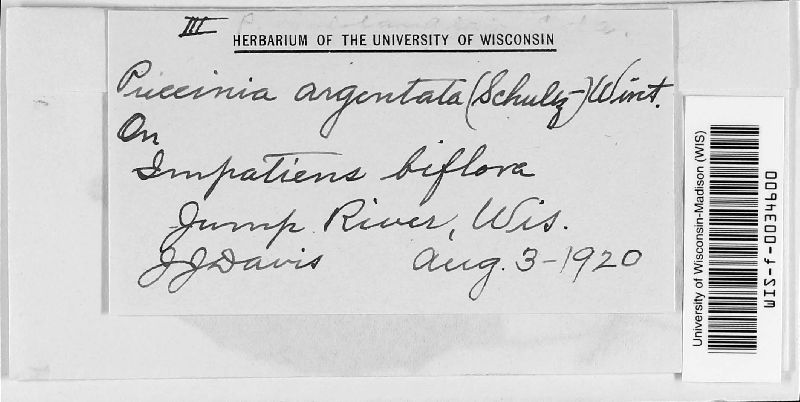 III
HERBARIUM OF THE UNIVERSITY OF WISCONSIN
Puccinia argentata (Schultz-) Wint.
On
Impatiens biflora
Jump River, Wis.
JJ Davis Aug. 3-1920
University of Wisconsin-Madison (WIS)
WIS-f-0034600